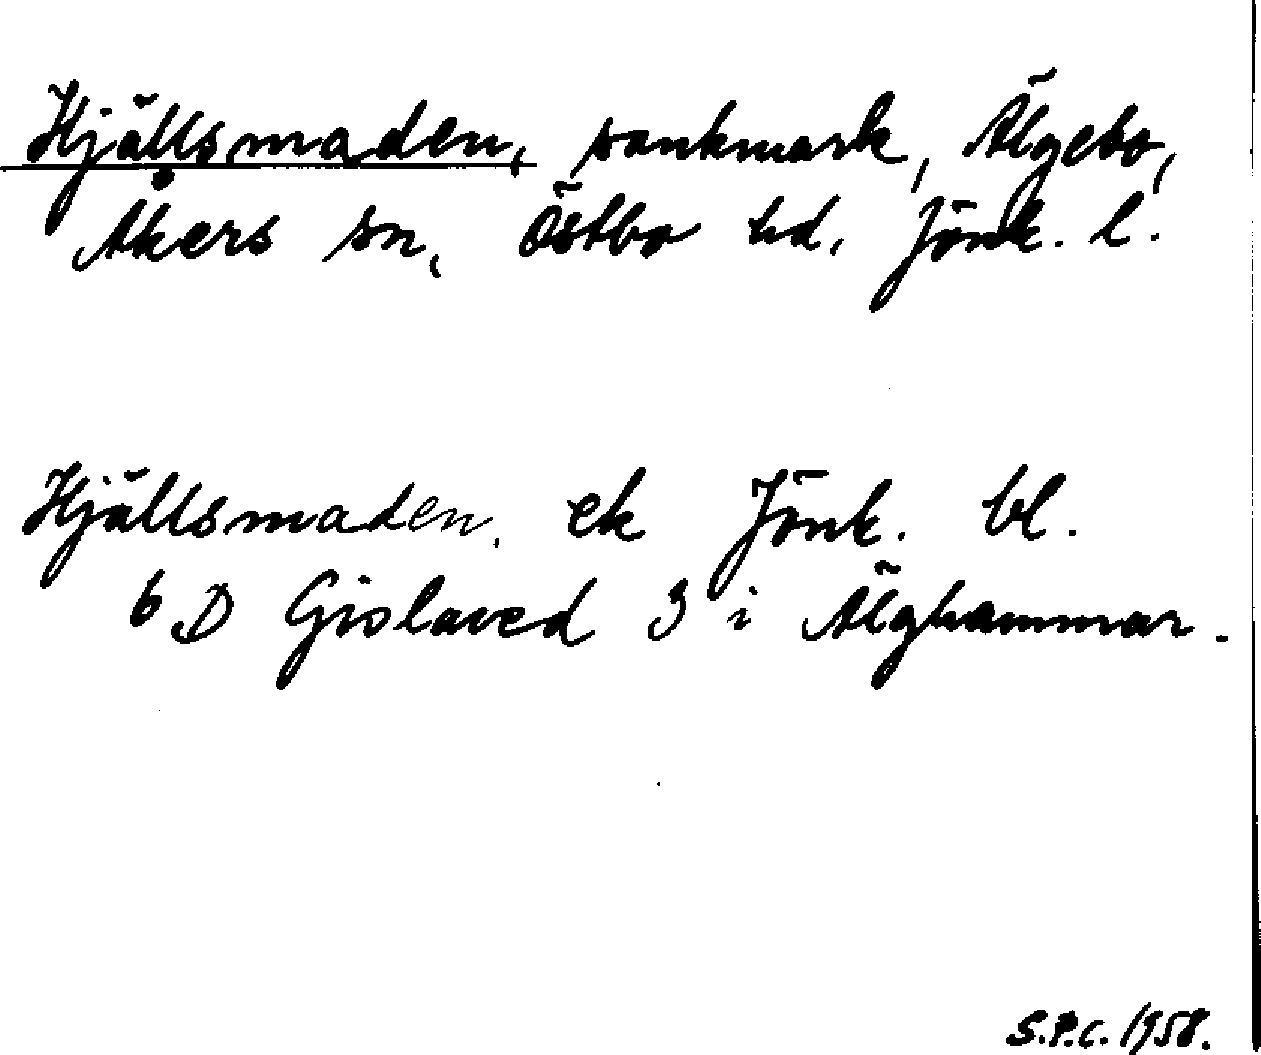 Hjällsmaden, sankmark, Älgebo,
Åkers sn, Östbo hd, Jönk. l.
Hjällsmaden, ek Jönk. bl.
6 D Gislaved 3 i Älghammar.
S.P.C. 1958.